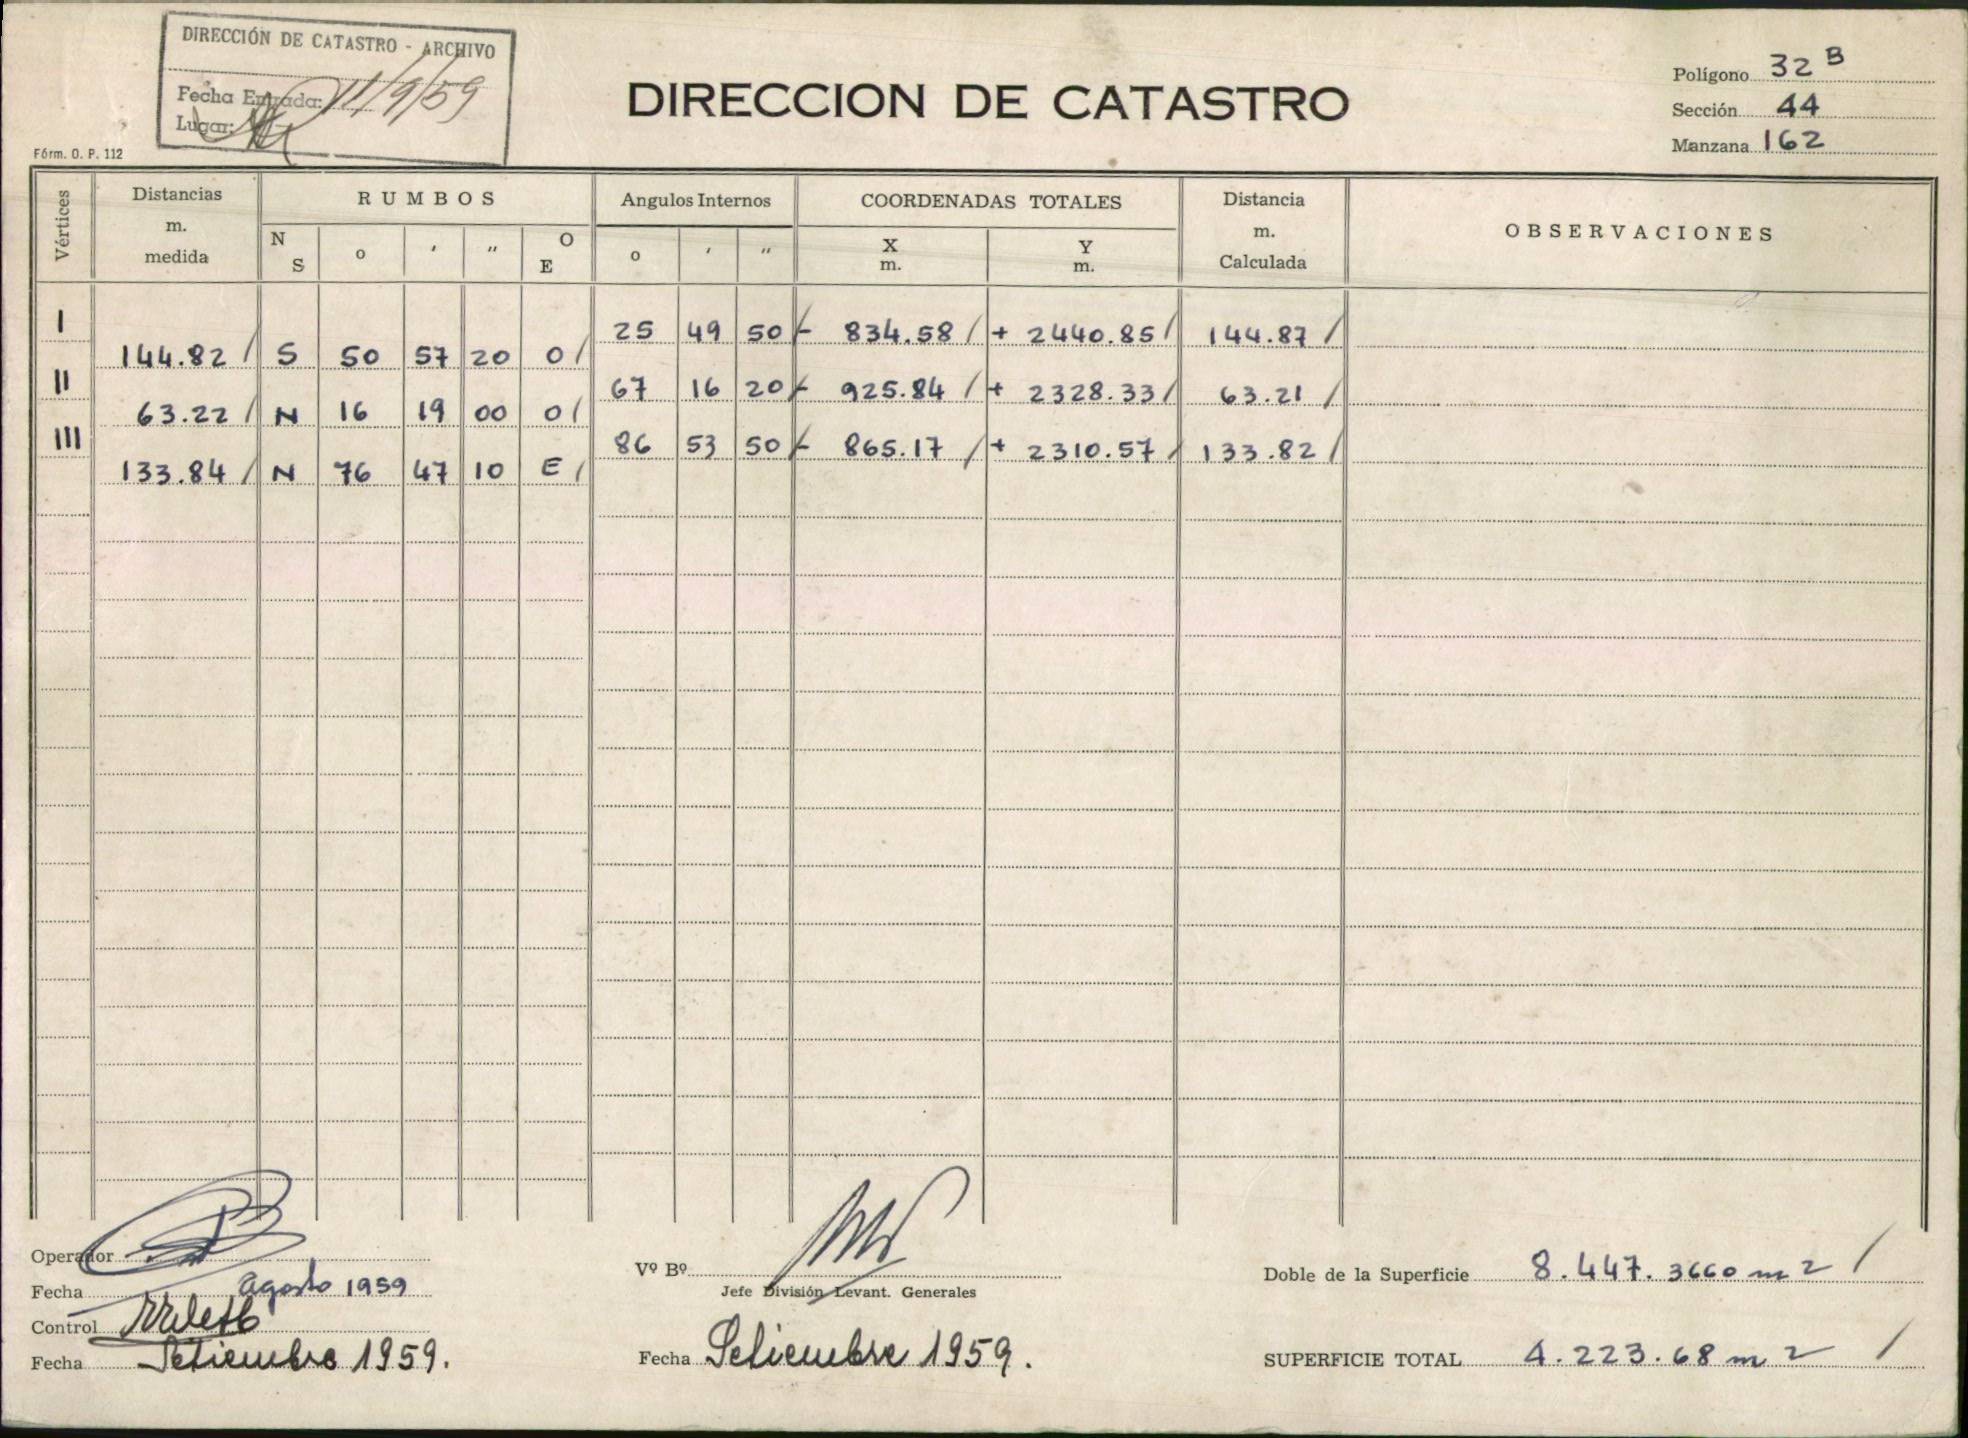 DIRECCIÓN DE CATASTRO - ARCHIVO
Fecha Entrada: 11/9/59
Lugar:
DIRECCION DE CATASTRO
Polígono 32 B
Sección 44
Manzana 162
Fórm. O. P. 112
Vértices Distancias m. medida RUMBOS Angulos Internos COORDENADAS TOTALES Distancia m. Calculada OBSERVACIONES
N S o ' " O E o ' " X m. Y m.
I 25 49 50 - 834.58 / + 2440.85 / 144.87 /
144.82 / S 50 57 20 O /
II 67 16 20 - 925.84 / + 2328.33 / 63.21 /
63.22 / N 16 19 00 O /
III 86 53 50 - 865.17 / + 2310.57 / 133.82 /
133.84 / N 76 47 10 E /
Operador
Fecha agosto 1959
Control
Fecha Setiembre 1959.
Vº Bº
Jefe División Levant. Generales
Fecha Setiembre 1959.
Doble de la Superficie 8.447.3660 m2 /
SUPERFICIE TOTAL 4.223.68 m2 /